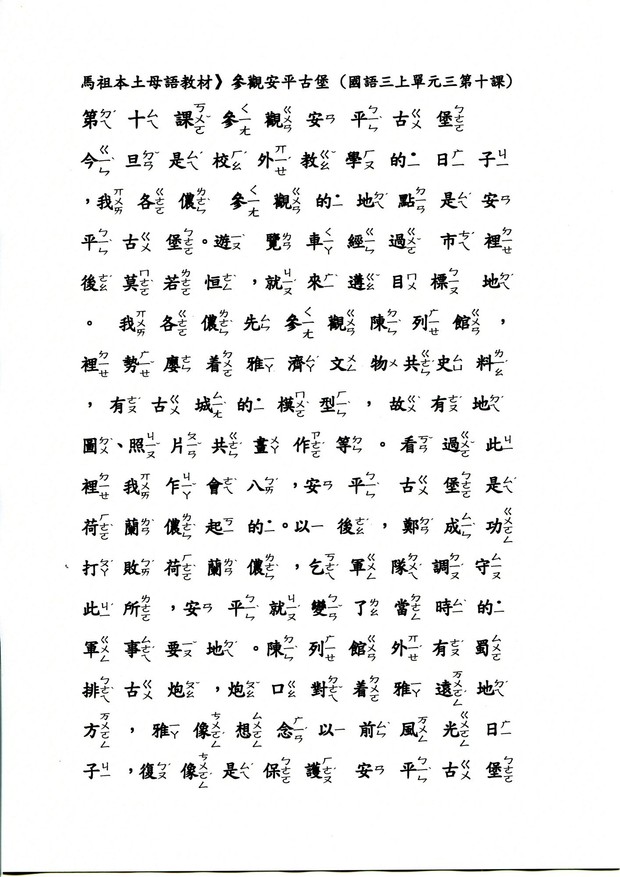 馬祖本土母語教材》參觀安平古堡（國語三上單元三第十課）
第十課參觀安平古堡
今旦是校外教學的日子
，我各儂參觀的地點是安
平古堡。遊覽車經過市裡
後莫若恒，就來遵目標地
。我各儂先參觀陳列館，
裡勢廖着雅濟文物共史料
，有古城的模型，故有地
圖、照片共畫作等。看過此
裡我乍會八，安平古堡是
荷蘭儂起的。以後，鄭成功
打敗荷蘭儂，乞軍隊調守
此所，安平就變了當時的
軍事要地。陳列館外有蜀
排古炮，炮口對着雅遠地
方，雅像想念以前風光日
子，復像是保護安平古堡